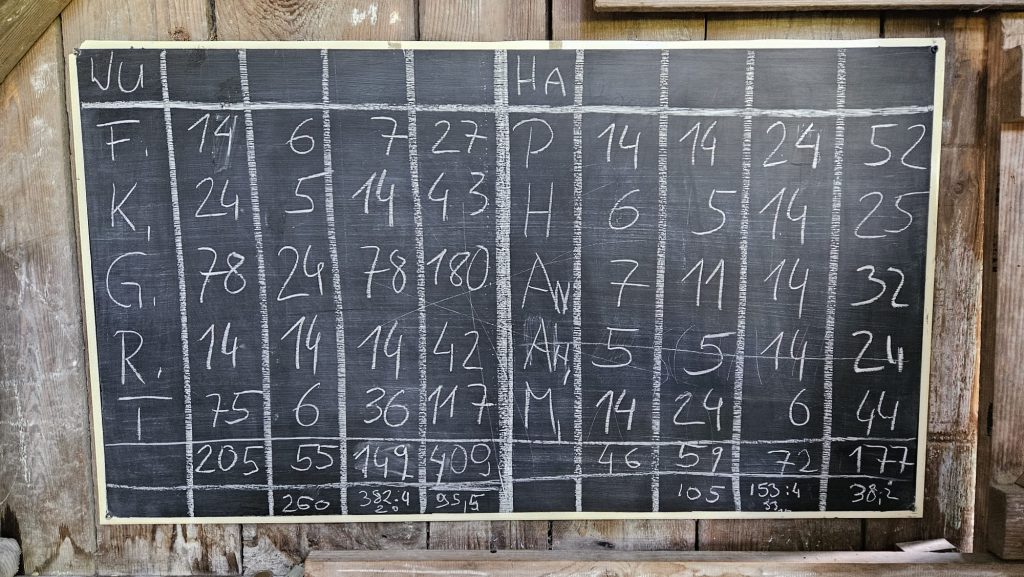 WU HA
F. 14 6 7 27 P 14 14 24 52
K, 24 5 14 43 H 6 5 14 25
G. 78 24 78 180 AW 7 11 14 32
R. 14 14 14 42 AH, 5 5 14 24
T 75 6 36 117 M, 14 24 6 44
205 55 149 409 46 59 72 177
260 382:4 95,5 105 153:4 38,2